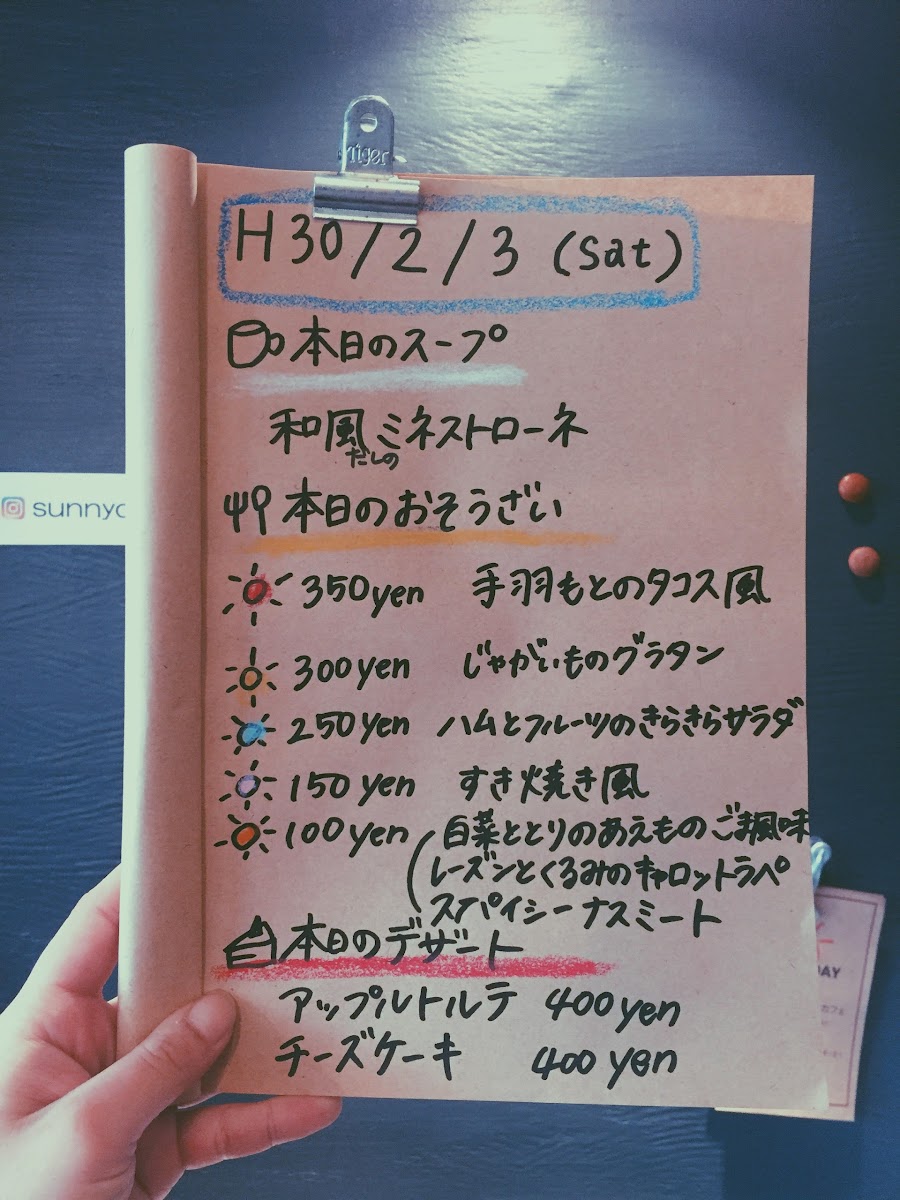 Tiger
H30/2/3 (Sat)
本日のスープ
和風ミネストローネ
だしの
sunnyd
本日のおそうざい
350yen 手羽もとのタコス風
300yen じゃがいものグラタン
250yen ハムとフルーツのきらきらサラダ
150yen すき焼き風
100yen 白菜ととりのあえものごま風味
レーズンとくるみのキャロットラペ
スパイシーナスミート
本日のデザート
アップルトルテ 400yen
チーズケーキ 400yen
AY
カフェ